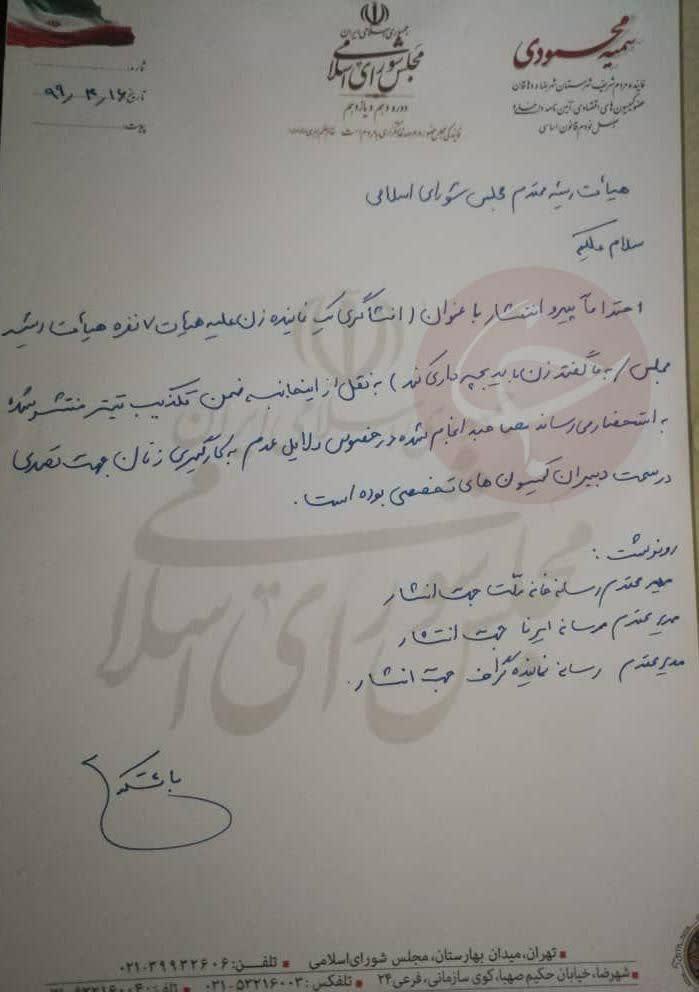 جمهوری اسلامی ایران
مجلس شورای اسلامی
دوره دهم و یازدهم
سمیه محمودی
نماینده مردم شریف شهرستان شهرضا و دهاقان
عضو کمیسیون های اقتصادی، آئین نامه داخلی و
اصل نودم قانون اساسی
شماره:
تاریخ: ۹۹٫۴٫۱۶
پیوست:
هیأت رئیسه محترم مجلس شورای اسلامی
سلام علیکم
احتراماً پیرو انتشار با عنوان (افشاگری یک نماینده زن علیه هیات ۷ نفره هیأت رئیسه
مجلس / به ما گفتند زن باید بچه داری کند) به نقل از اینجانب ضمن تکذیب تیتر منتشر شده
به استحضار می رساند مصاحبه انجام شده در خصوص دلایل عدم به کارگیری زنان جهت تصدی
در سمت دبیران کمیسیون های تخصصی بوده است.
رونوشت:
مدیر محترم رسانه خانه ملت جهت انتشار
مدیر محترم رسانه ایرنا جهت انتشار
مدیر محترم رسانه نماینده گراف جهت انتشار.
با تشکر
تهران، میدان بهارستان، مجلس شورای اسلامی ▪ تلفن: ۰۲۱-۳۹۹۳۲۶۰۶
شهرضا، خیابان حکیم صهبا، کوی سازمانی، فرعی ۲۴ ▪ تلفکس: ۰۳۱-۵۳۲۱۶۰۰۳ ▪ تلفن: